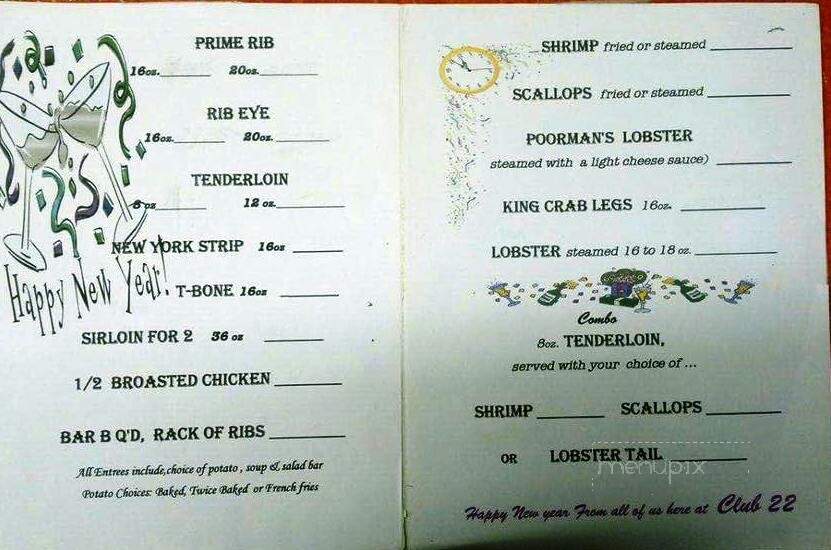 PRIME RIB
16oz.________ 20oz.________
RIB EYE
16oz.________ 20oz.________
TENDERLOIN
8 oz________ 12 oz.__________
NEW YORK STRIP 16oz ________
T-BONE 16oz ________
SIRLOIN FOR 2 36 oz ________
1/2 BROASTED CHICKEN_________
BAR B Q'D, RACK OF RIBS __________
All Entrees include,choice of potato , soup & salad bar
Potato Choices: Baked, Twice Baked or French fries
Happy New Year!
SHRIMP fried or steamed __________
SCALLOPS fried or steamed __________
POORMAN'S LOBSTER
steamed with a light cheese sauce) _________
KING CRAB LEGS 16oz. __________
LOBSTER steamed 16 to 18 oz. __________
Combo
8oz. TENDERLOIN,
served with your choice of ...
SHRIMP ________ SCALLOPS _________
OR LOBSTER TAIL __________
menupix
Happy New year From all of us here at Club 22